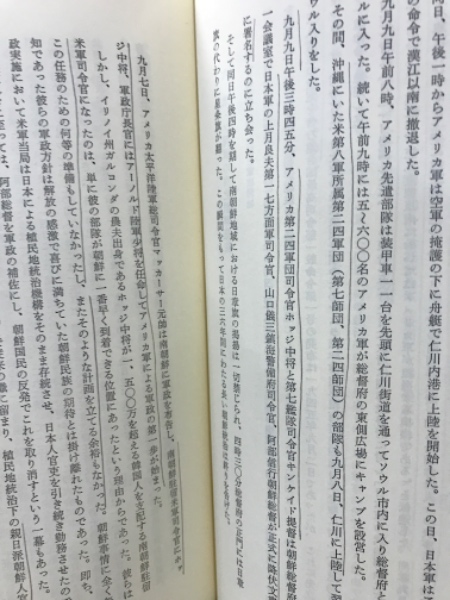 同日、午後一時からアメリカ軍は空軍の掩護の下に舟艇で仁川内港に上陸を開始した。この日、日本軍は
の命令で漢江以南に撤退した。
九月九日午前八時、アメリカ先遣部隊は装甲車一一台を先頭に仁川街道を通ってソウル市内に入り総督府と
ルに入った。続いて午前九時には五〜六〇〇名のアメリカ軍が総督府の東側広場にキャンプを設営した。
その間、沖縄にいた米第八軍所属第二四軍団（第七師団、第二四師団）の部隊も九月八日、仁川に上陸して
ウル入りをした。
九月九日午後三時四五分、アメリカ第二四軍団司令官ホッジ中将と第七艦隊司令官キンケイド提督は朝鮮総督
一会議室で日本軍の上月良夫第一七方面軍司令官、山口儀三鎮海警備府司令官、阿部信行朝鮮総督が正式に降伏文
に署名するのに立ち会った。
そして同日午後四時を期して南朝鮮地域における日章旗の掲揚は一切禁じられ、四時三〇分総督府の正門には日章
旗の代わりに星条旗が翻った。この瞬間をもって日本の三六年間にわたる長い朝鮮統治は終りを告げた。
九月七日、アメリカ太平洋陸軍総司令官マッカーサー元帥は南朝鮮に軍政を布告し、南朝鮮駐留米軍司令官にホッ
ジ中将、軍政庁長官にはアーノルド陸軍少将を任命してアメリカ軍による軍政の第一歩が始まった。
しかし、イリノイ州ガルコンダの農夫出身であるホッジ中将が一、五〇〇万を超える韓国人を支配する南朝鮮駐留
米軍司令官になったのは、単に彼の部隊が朝鮮に一番早く到着できる位置にあったという理由からであった。彼らは
この任務のための何等の準備もしていなかったし、またそのような計画を立てる余裕もなかった。朝鮮事情に全く
知であった彼らの軍政方針は解放の感激で喜びに満ちていた朝鮮民族の期待とは掛け離れたものであった。即ち、
政実施において米軍当局は日本による植民地統治機構をそのまま存続させ、日本人官吏を引き続き勤務させたの
に至っては、阿部総督を軍政の補佐にし、朝鮮国民の反発でこれを取り消すという一幕もあった。
に留まり、植民地統治下の親日派朝鮮人官